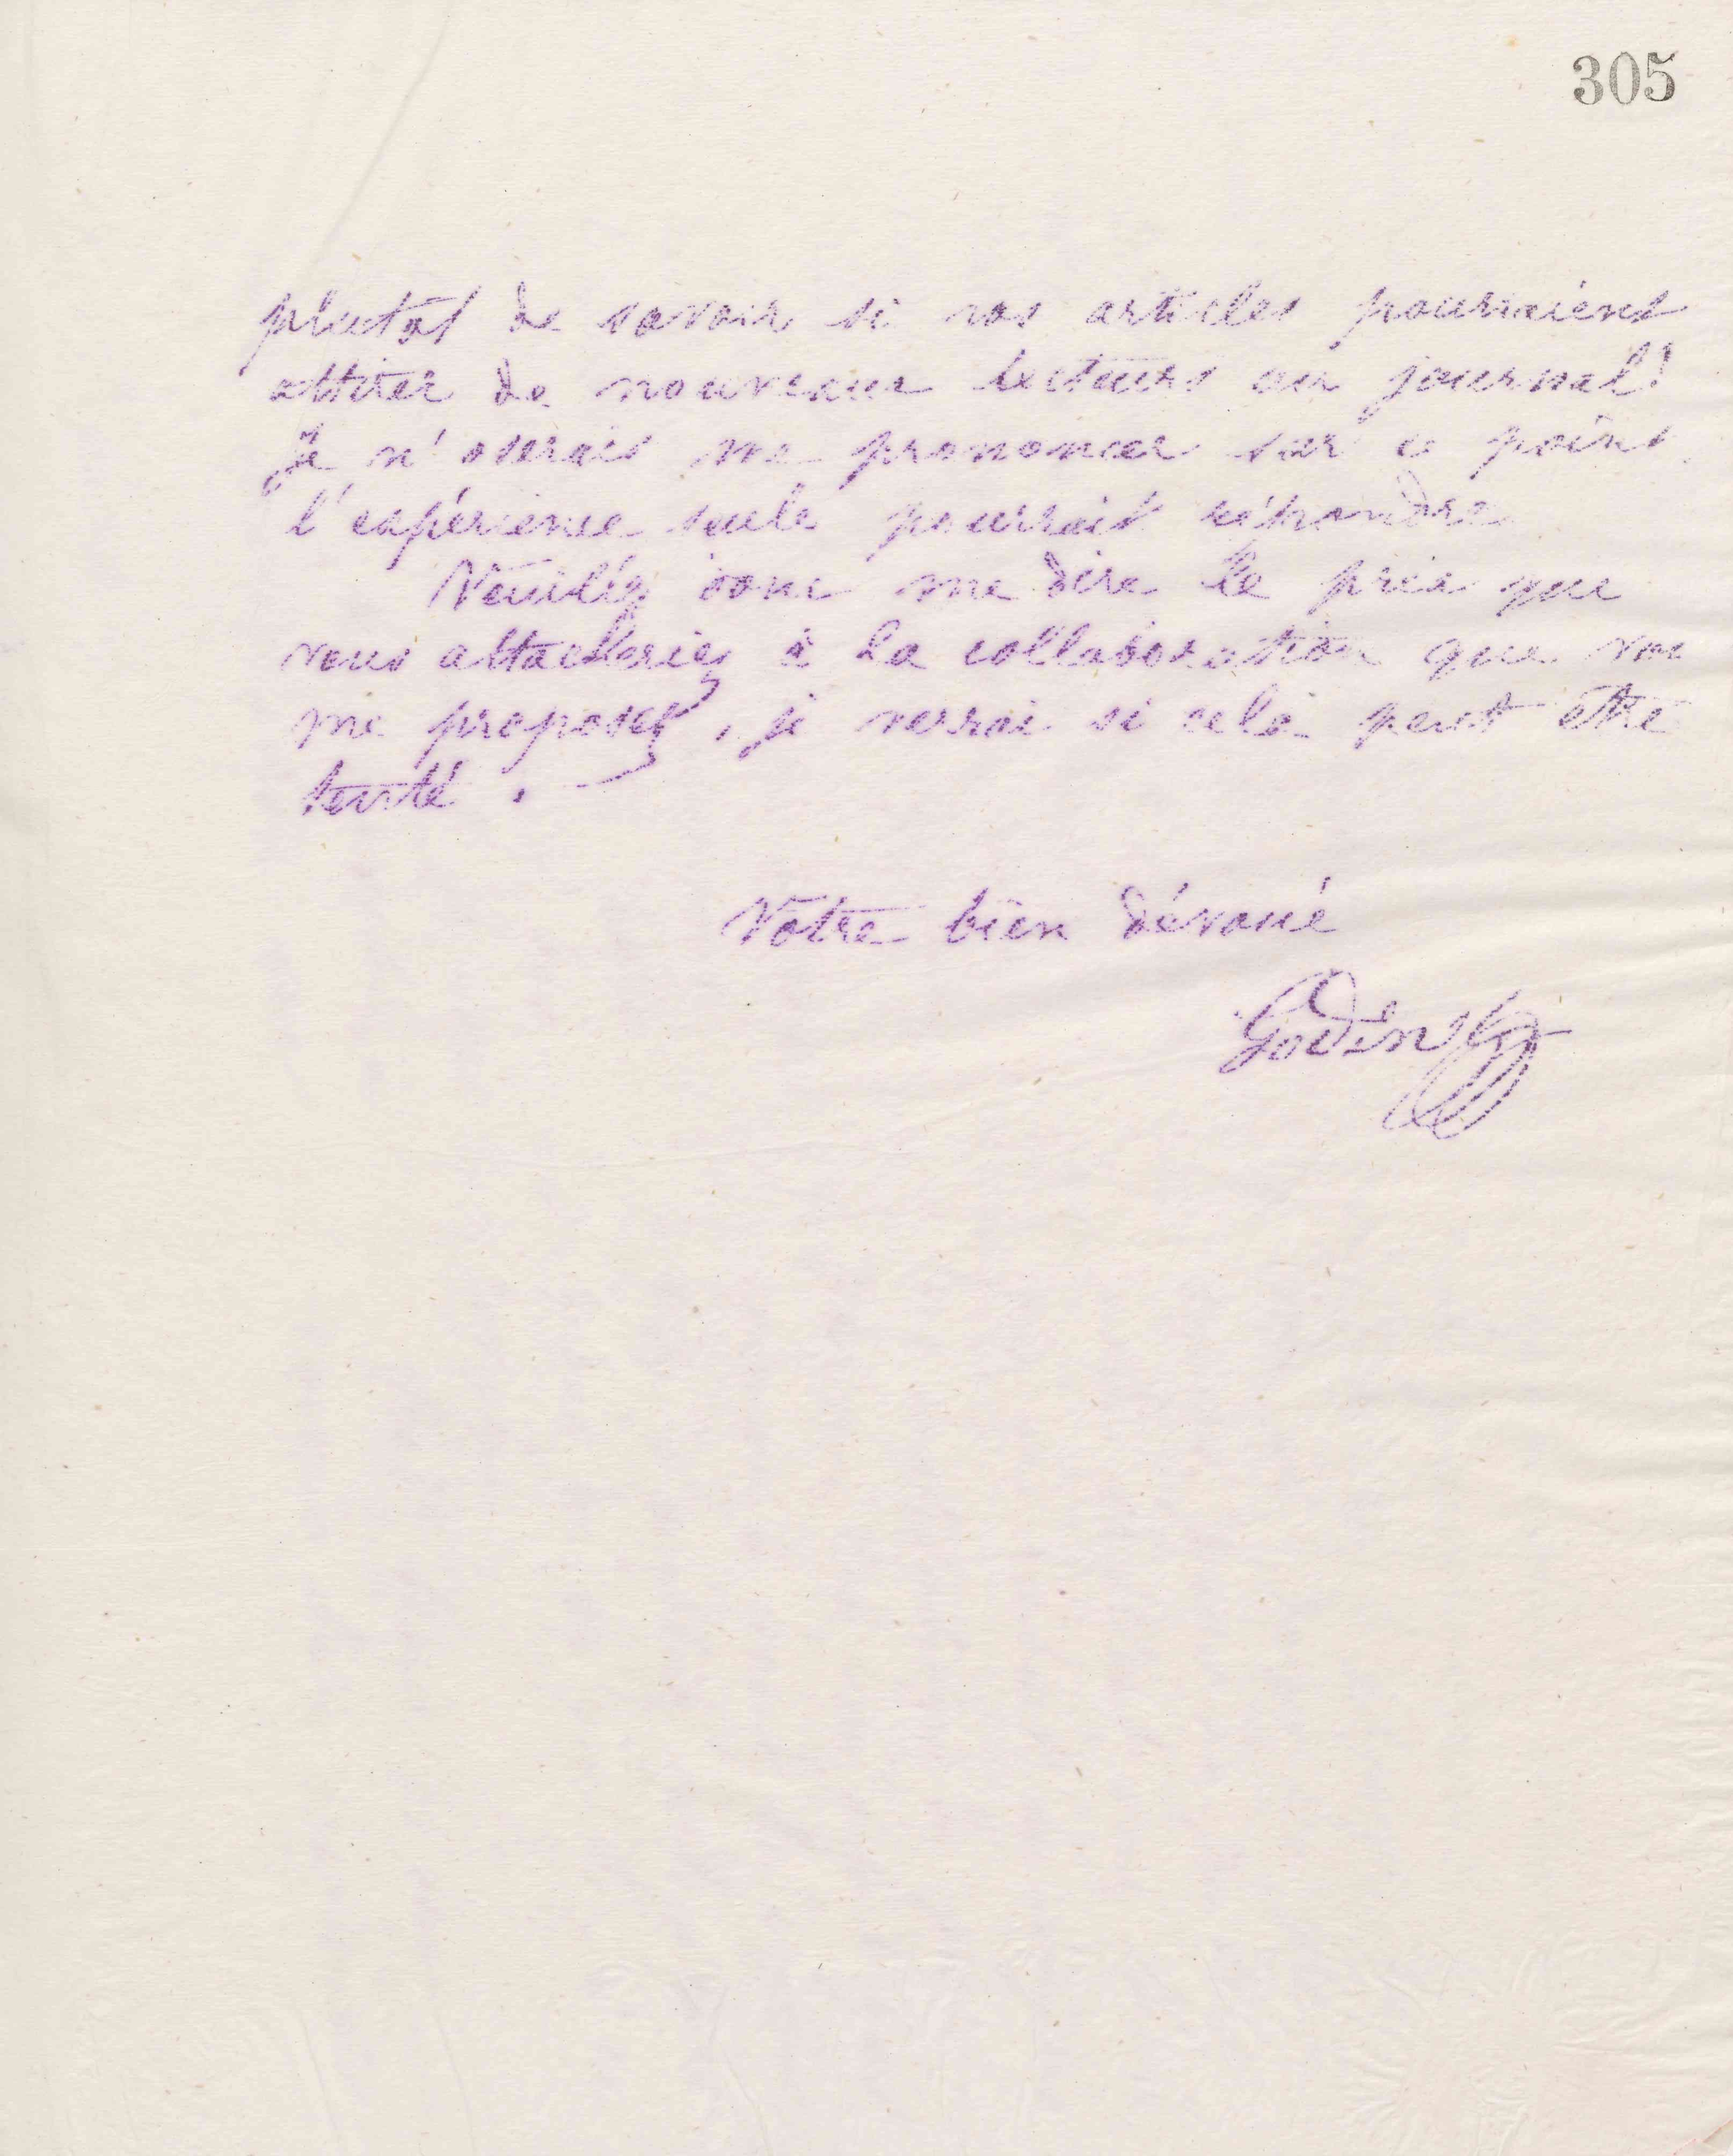 305
plutôt de savoir si vos articles pourraient
attirer de nouveaux lecteurs au journal!
Je n'oserais me prononcer sur ce point
l'expérience seule pourrait répondre
Veuillez donc me dire le prix que
vous attacheriez à la collaboration que vous
me proposez, je verrai si celà peut être
tenté.
Votre bien dévoué
Godin